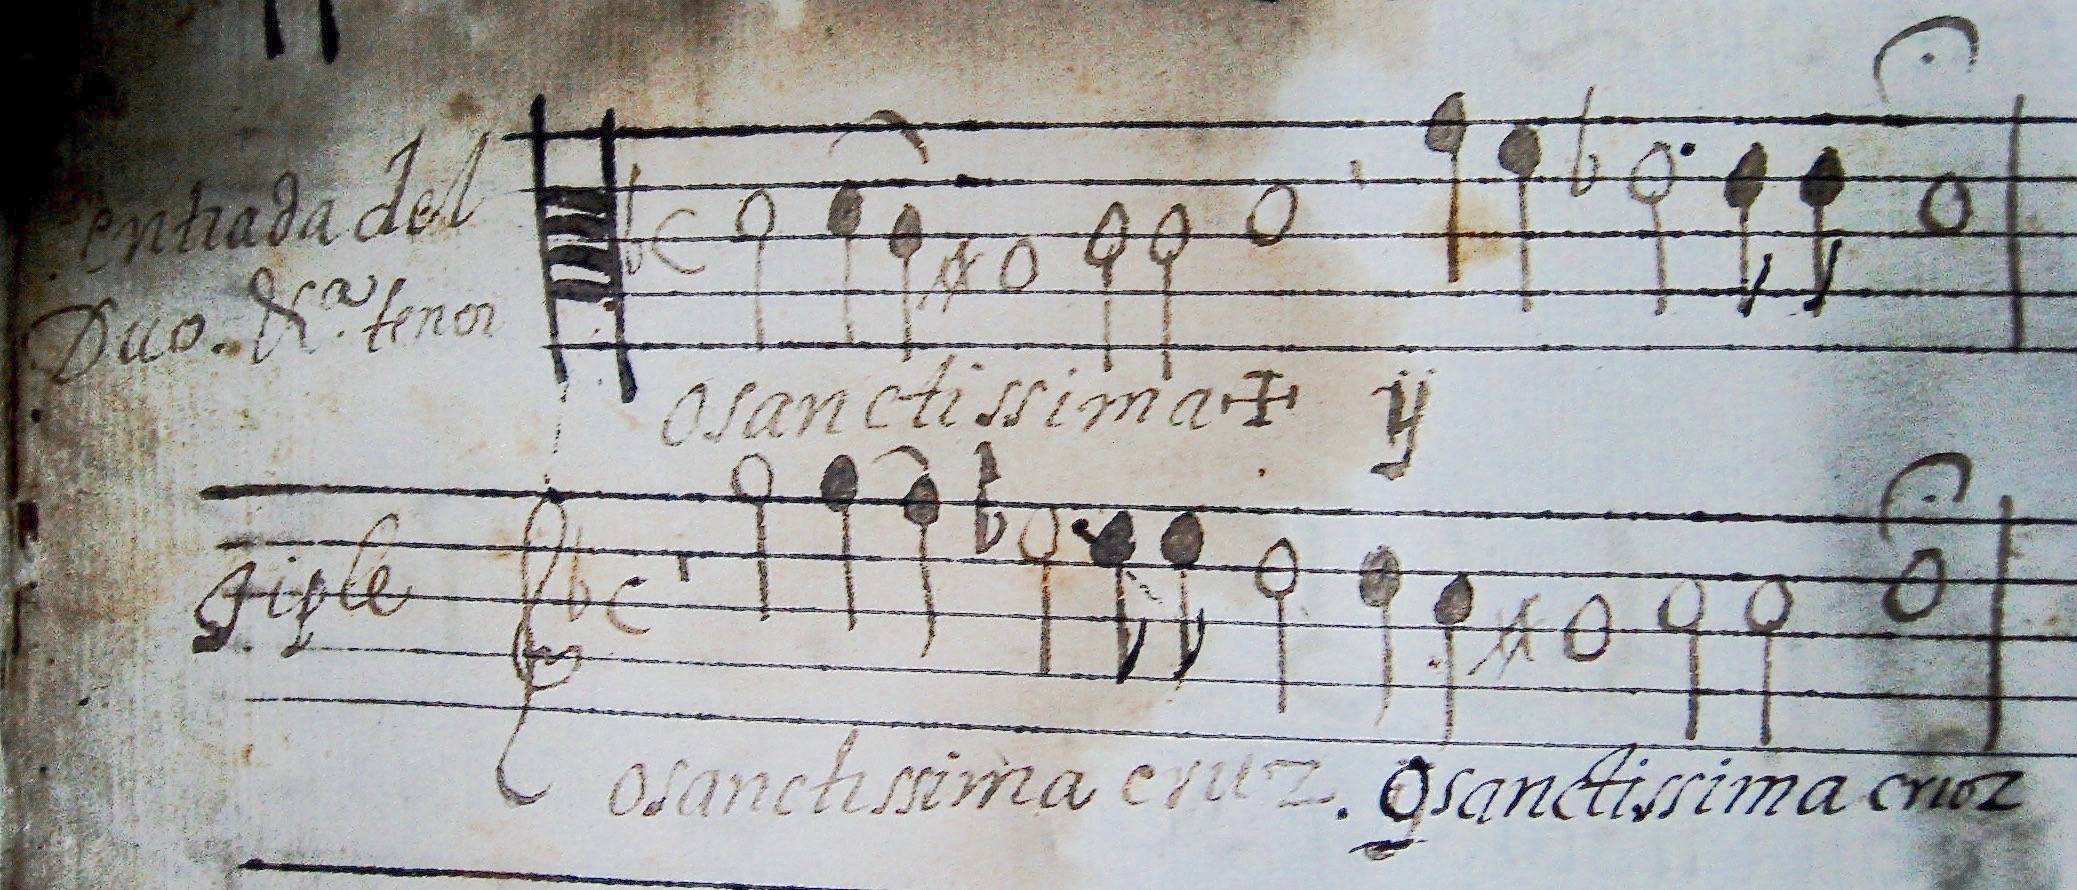 entrada del
Duo. & a. tenor
osanctissima ✠ ij
tiple
osanctissima cruz. Osanctissima cruz